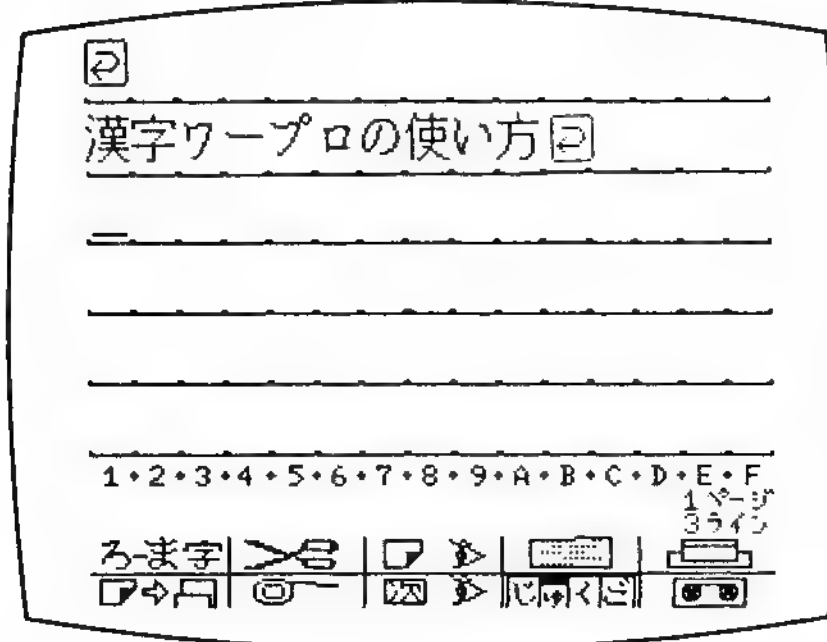 漢字ワープロの使い方
1・2・3・4・5・6・7・8・9・A・B・C・D・E・F
1ページ
3ライン
ろーま字
次
じゅくご